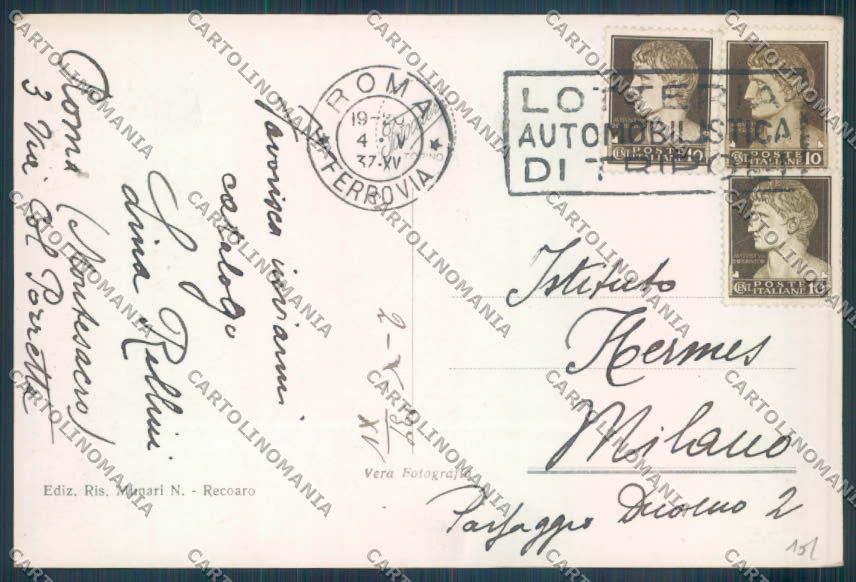 ROMA
19-20
4 · V
37·XV
* FERROVIA *
LOTTERIA
AUTOMOBILISTICA
DI TRIPOLI
CENT POSTE 10
ITALIANE
CENT POSTE 10
ITALIANE
CENT POSTE 10
ITALIANE
favorisca inviarmi
catalogo
Lina Rellini
Roma (Montesacro)
3 Via Col Porretta
2-V-37
XV
Istituto
Hermes
Milano
Passaggio Duomo 2
Vera Fotografia
Ediz. Ris. Munari N. - Recoaro
15/
CARTOLINOMANIA